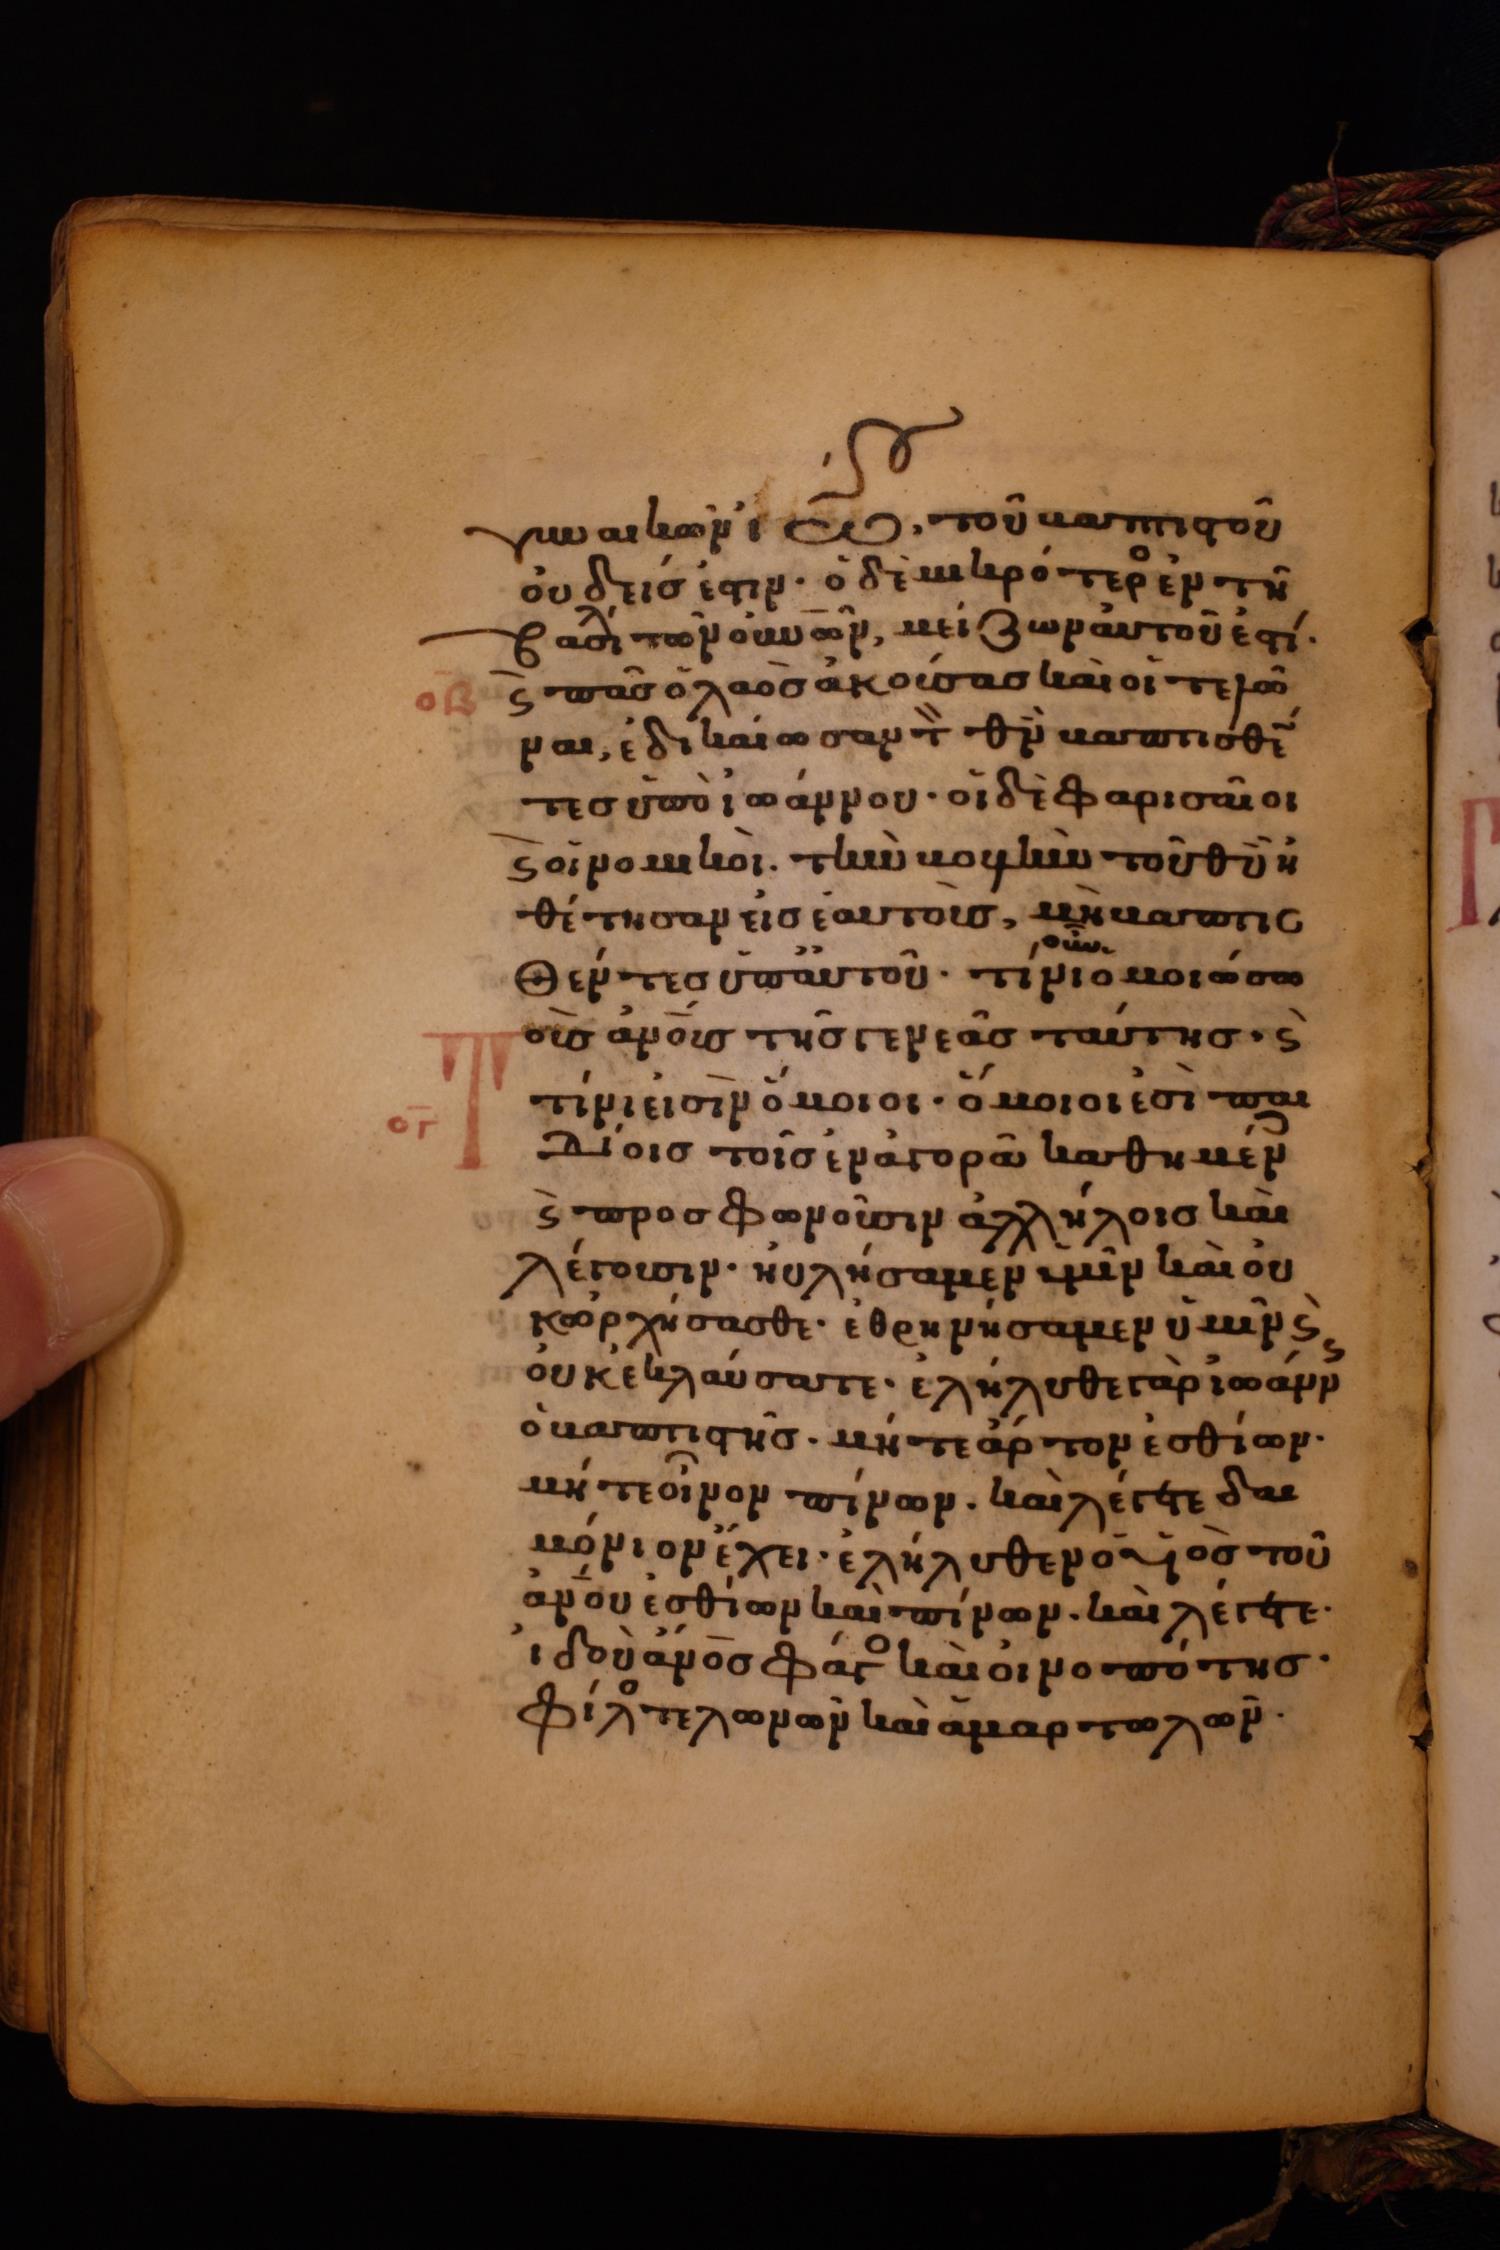 γυναικῶν ἰω, τοῦ βαπτιστοῦ
οὐδείς ἐστιν· ὁ δὲ μικρότερο ἐν τῆ
βασιλ τῶν οὐνῶν, μείζων αὐτοῦ ἐστί.
οβ ϛ πᾶσ ὁ λαὸσ ἀκούσασ καὶ οἱ τελῶ
ναι, ἐδικαίωσαν τ θν βαπτισθέ
τεσ ὑπὸ ἰωάννου· οἱ δὲ φαρισαῖοι
ϛ οἱ νομικοὶ. τὴν βουλὴν τοῦ θυ ἠ
θέτησαν εἰσ ἑαυτοὺσ, μὴ βαπτισ
θέντεσ ὑπ αὐτοῦ· τίνι οὖν ὁμοιώσω
τοὺσ ἀνουσ τῆσ γενεᾶσ ταύτησ· ϛ
ογ τίνι εἰσὶν ὅμοιοι· ὅμοιοι ἐσὶ παι
δίοισ τοῖσ ἐν ἀγορᾶ καθημέν
ϛ προσφωνοῦσιν ἀλλήλοισ καὶ
λέγουσιν· ηὐλήσαμεν ὑμῖν καὶ οὐ
κ ὠρχήσασθε· ἐθρηνήσαμεν ὑμῖν ϛ
οὐκ ἐκλαύσατε· ἐλήλυθε γὰρ ἰωάννς
ὁ βαπτιστῆσ· μήτε ἄρτον ἐσθίων·
μήτε οἶνον πίνων. καὶ λέγετε δαι
μόνιον ἔχει· ἐλήλυθεν ὁ υἱὸσ τοῦ
ἀνου ἐσθίων καὶ πίνων. καὶ λέγετε·
ἰδοὺ ἀνοσ φάγο καὶ οἰνοπότησ·
φίλο τελωνῶν καὶ ἁμαρτωλῶν·